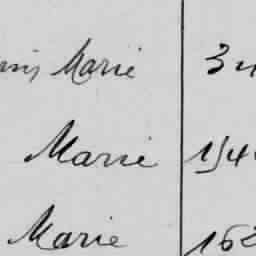 Marie 3
Marie 154
Marie 162